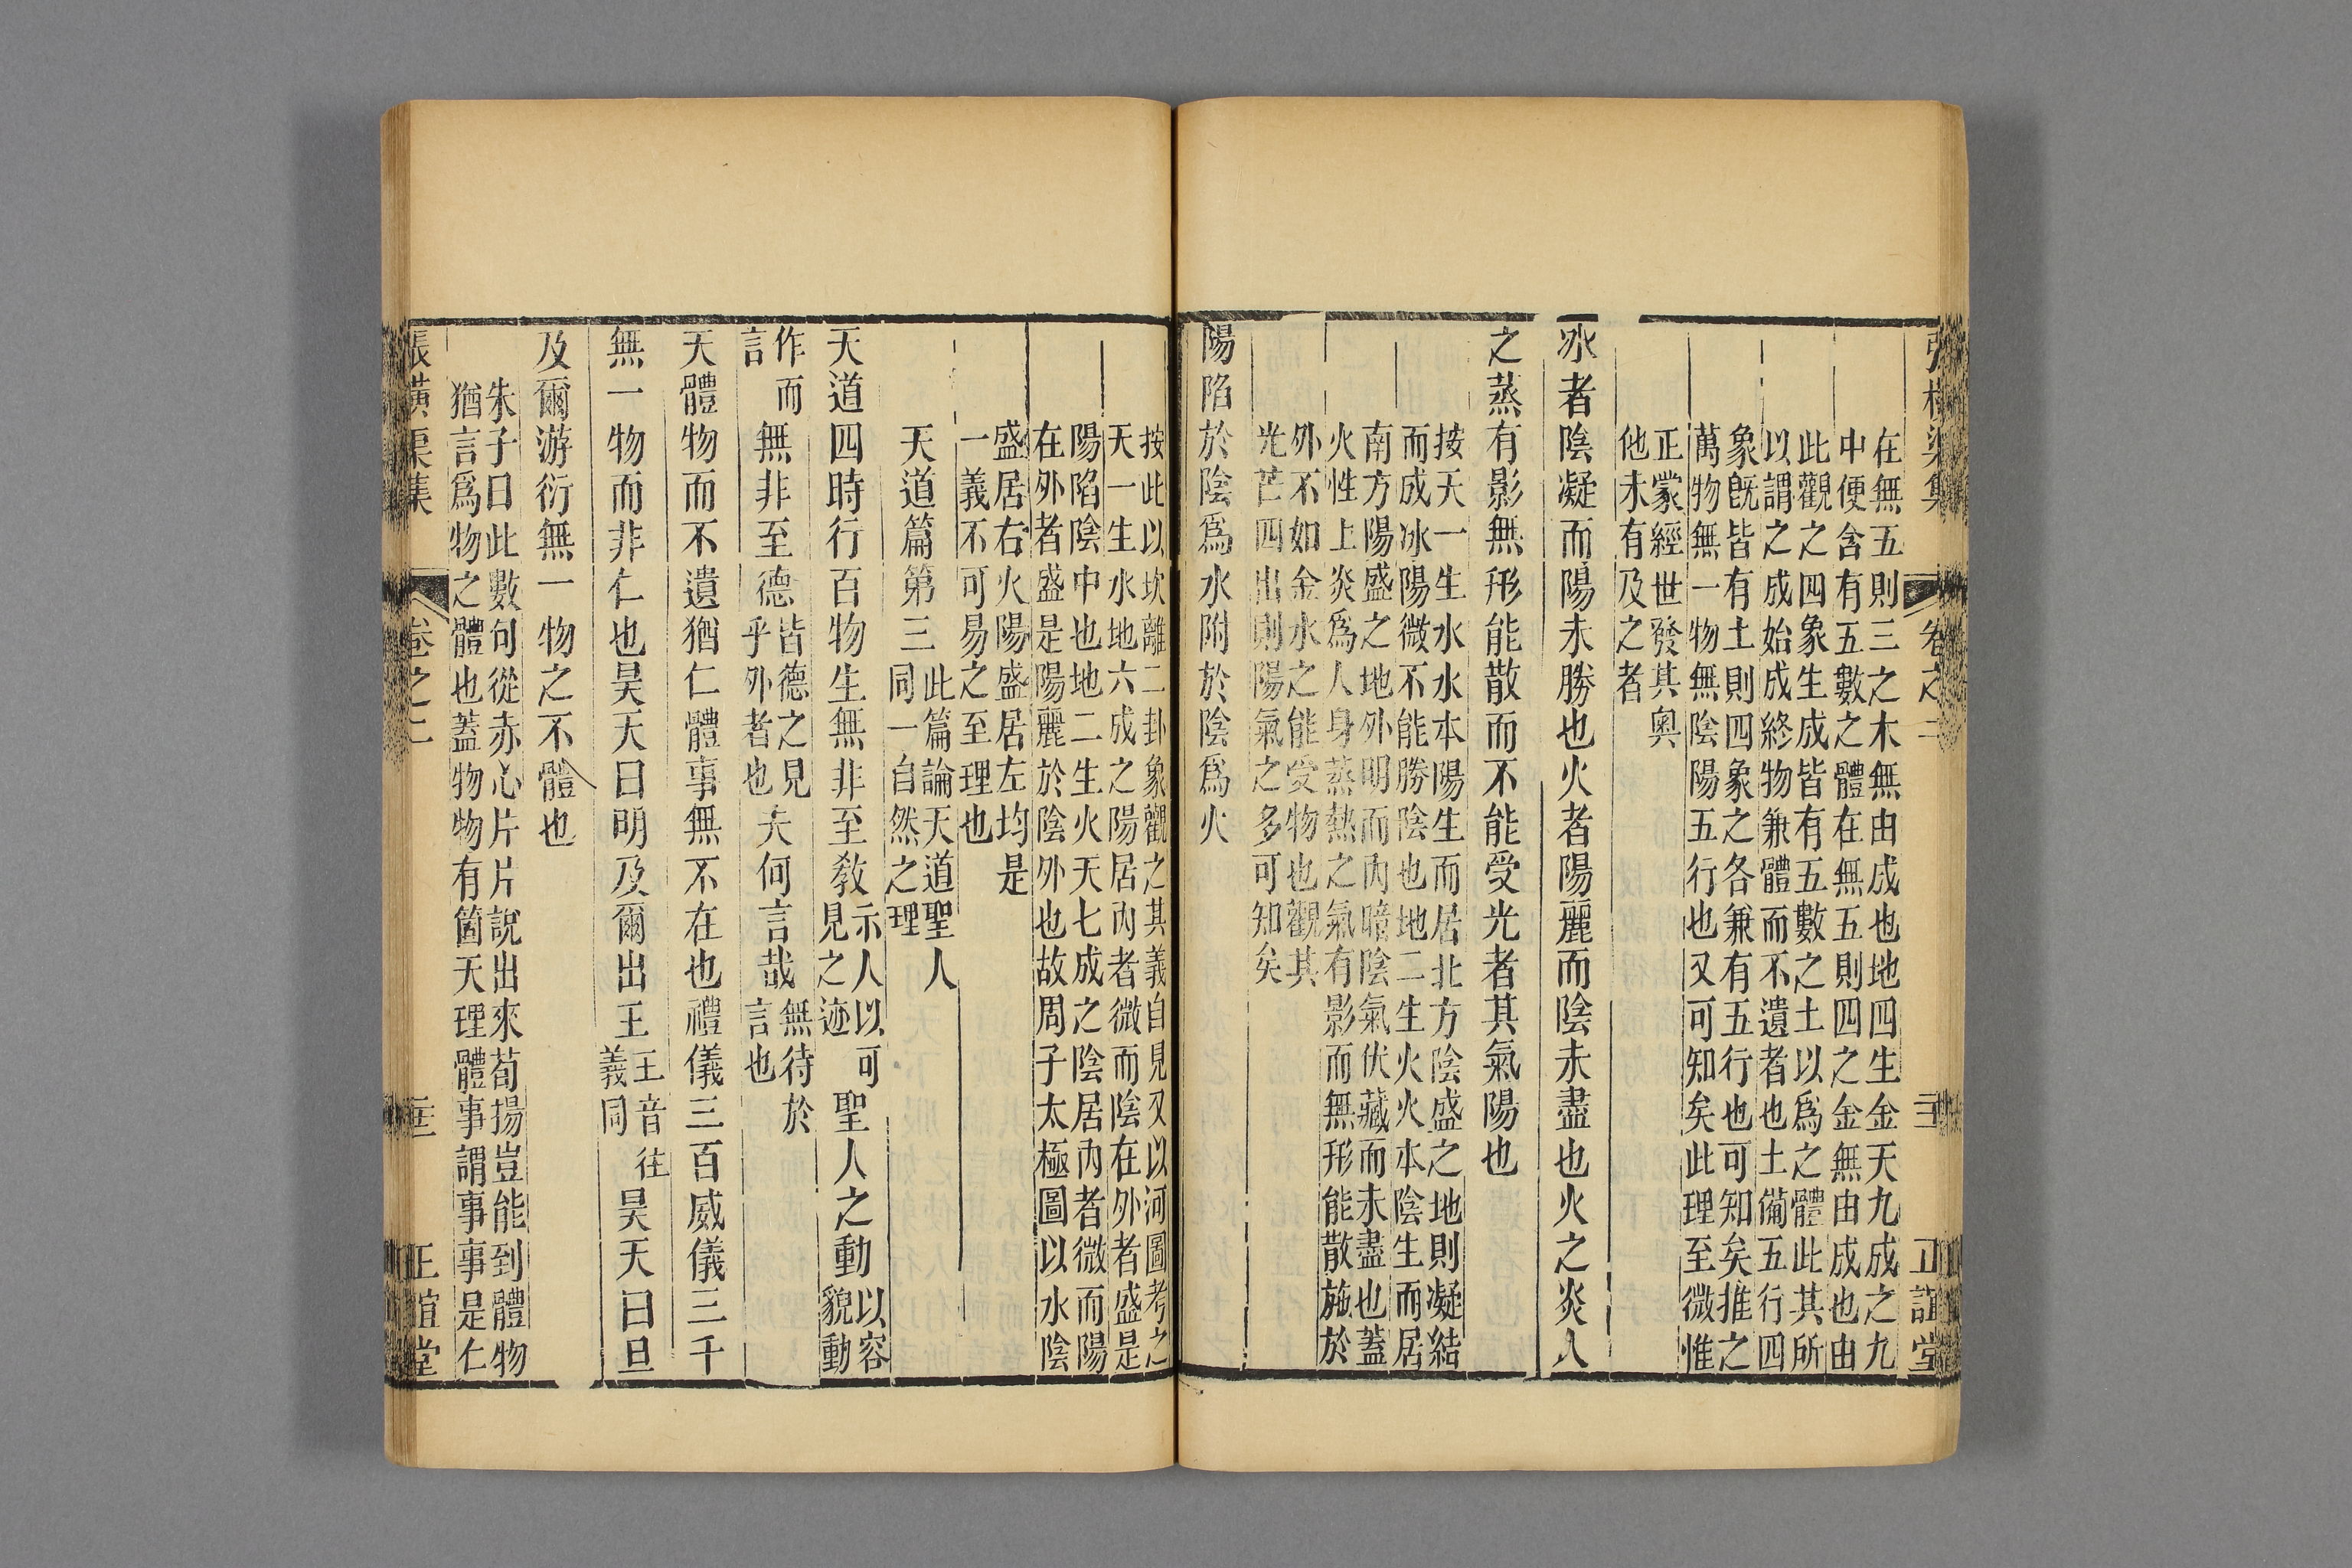 在無五則三之木無由成也地四生金天九成之九
中便含有五數之體在無五則四之金無由成也由
此觀之四象生成皆有五數之土以爲之體此其所
以謂之成始成終物兼體而不遺者也土備五行四
象旣皆有土則四象之各兼有五行也可知矣推之
萬物無一物無陰陽五行也又可知矣此理至微惟
正蒙經世發其奧
他未有及之者
冰者陰凝而陽未勝也火者陽麗而陰未盡也火之炎人
之蒸有影無形能散而不能受光者其氣陽也
按天一生水水本陽生而居北方陰盛之地則凝結
而成冰陽微不能勝陰也地二生火火本陰生而居
南方陽盛之地外明而內暗陰氣伏藏而未盡也蓋
火性上炎爲人身蒸熱之氣有影而無形能散施於
外不如金水之能受物也觀其
光芒四出則陽氣之多可知矣
陽陷於陰爲水附於陰爲火
按此以坎離二卦象觀之其義自見又以河圖考之
天一生水地六成之陽居內者微而陰在外者盛是
陽陷陰中也地二生火天七成之陰居內者微而陽
在外者盛是陽麗於陰外也故周子太極圖以水陰
盛居右火陽盛居左均是
一義不可易之至理也
天道篇第三 此篇論天道聖人
同一自然之理
天道四時行百物生無非至敎 示人以可
見之迹 聖人之動 以容
貌動
作而
言 無非至德 皆德之見
乎外者也 夫何言哉 無待於
言也
天體物而不遺猶仁體事無不在也禮儀三百威儀三千
無一物而非仁也昊天曰明及爾出王 王音往
義同 昊天曰旦
及爾游衍無一物之不體也
朱子曰此數句從赤心片片說出來荀揚豈能到體物
猶言爲物之體也蓋物物有箇天理體事謂事事是仁
張橫渠集 卷之二 正誼堂